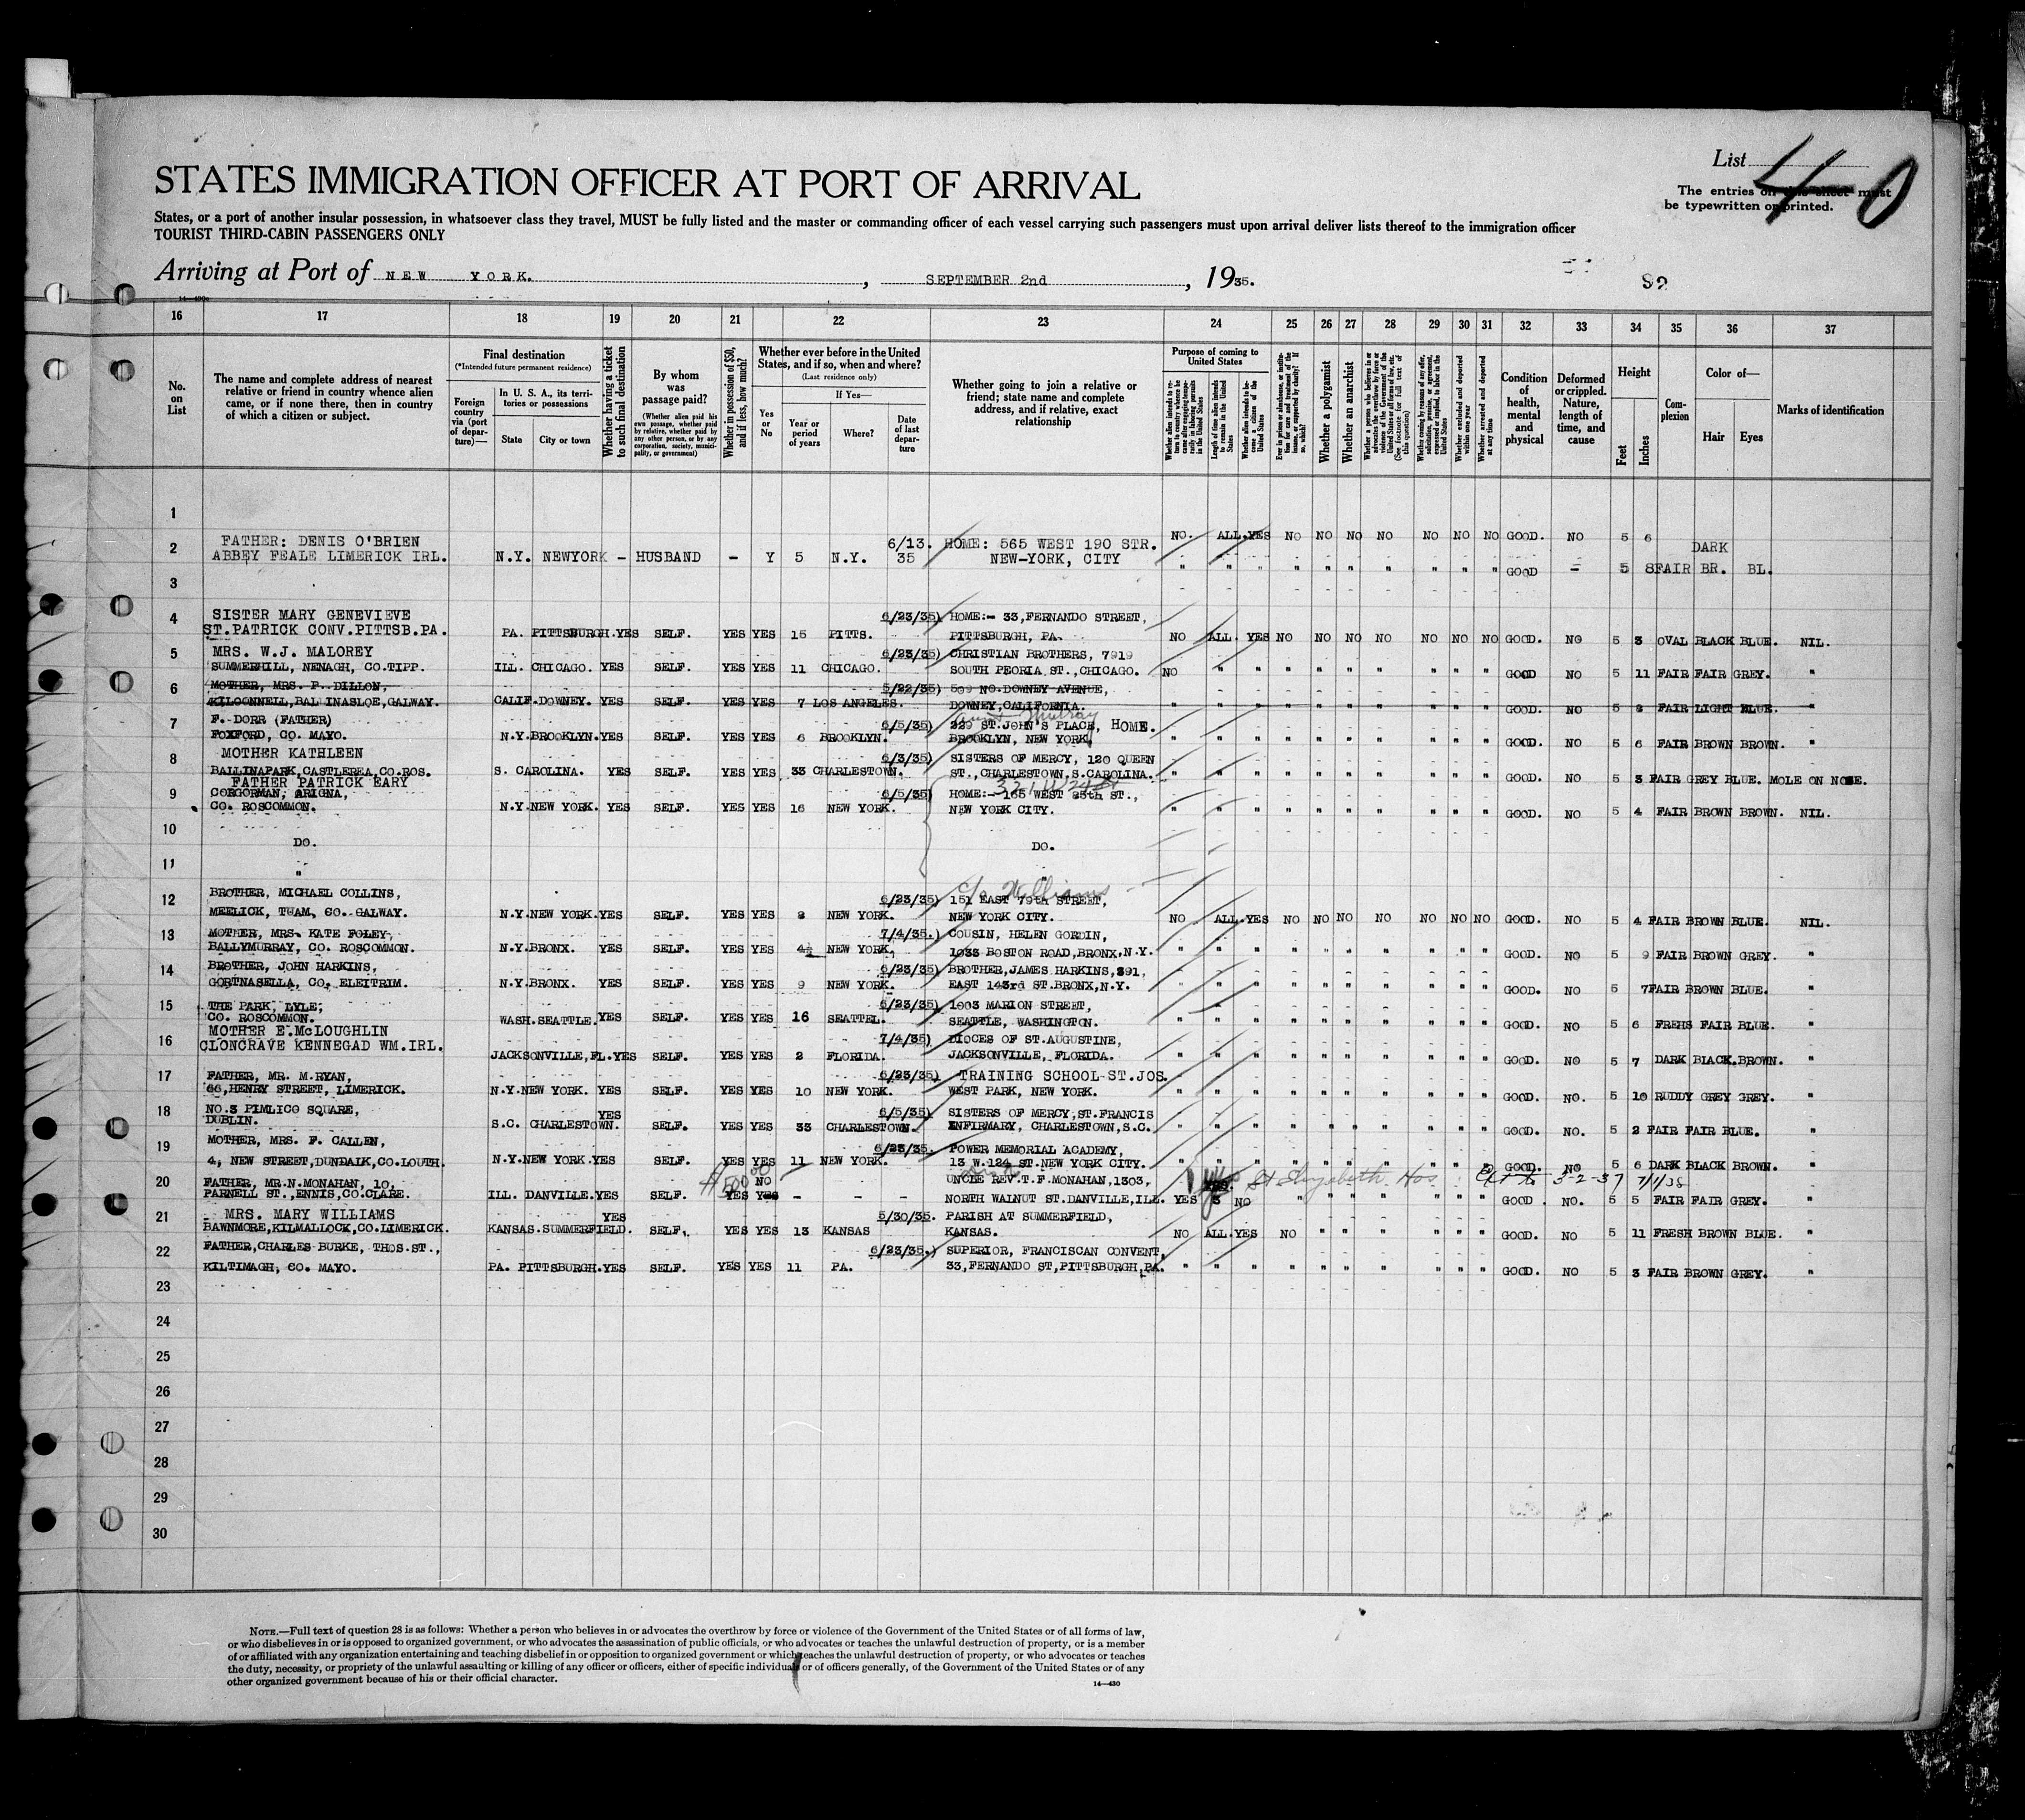 List 40
The entries on this sheet must
be typewritten or printed.
STATES IMMIGRATION OFFICER AT PORT OF ARRIVAL
States, or a port of another insular possession, in whatsoever class they travel, MUST be fully listed and the master or commanding officer of each vessel carrying such passengers must upon arrival deliver lists thereof to the immigration officer
TOURIST THIRD-CABIN PASSENGERS ONLY
Arriving at Port of NEW YORK. , SEPTEMBER 2nd , 1935.
16 17 18 19 20 21 22 23 24 25 26 27 28 29 30 31 32 33 34 35 36 37
No. on List
The name and complete address of nearest relative or friend in country whence alien came, or if none there, then in country of which a citizen or subject.
Final destination
(*Intended future permanent residence)
Foreign country via (port of departure)—
In U. S. A., its territories or possessions
State
City or town
Whether having a ticket to such final destination
By whom was passage paid?
(Whether alien paid his own passage, whether paid by relative, whether paid by any other person, or by any corporation, society, municipality, or government)
Whether in possession of $50, and if less, how much?
Whether ever before in the United States, and if so, when and where?
(Last residence only)
Yes or No
If Yes—
Year or period of years
Where?
Date of last departure
Whether going to join a relative or friend; state name and complete address, and if relative, exact relationship
Purpose of coming to United States
Length of time alien intends to remain in the United States
Whether alien intends to become a citizen of the United States
Whether a polygamist
Whether an anarchist
Whether excluded and deported within one year
Whether arrested and deported at any time
Condition of health, mental and physical
Deformed or crippled. Nature, length of time, and cause
Height
Feet
Inches
Complexion
Color of—
Hair
Eyes
Marks of identification
1
2 FATHER: DENIS O'BRIEN 6/13. HOME: 565 WEST 190 STR. NO. ALL. YES NO NO NO NO NO NO NO GOOD. NO 5 6
ABBEY FEALE LIMERICK IRL. N.Y. NEWYORK – HUSBAND – Y 5 N.Y. 35 NEW-YORK, CITY DARK
3 " " " " " " " " " " GOOD – 5 8 FAIR BR. BL.
4 SISTER MARY GENEVIEVE 6/23/35) HOME:- 33,FERNANDO STREET,
ST.PATRICK CONV.PITTSB.PA. PA. PITTSBURGH. YES SELF. YES YES 15 PITTS. PITTSBURGH, PA. NO ALL. YES NO NO NO NO NO NO NO GOOD. NO 5 3 OVAL BLACK BLUE. NIL.
5 MRS. W.J. MALOREY 6/23/35) CHRISTIAN BROTHERS, 7919
SUMMERHILL, NENAGH, CO.TIPP. ILL. CHICAGO. YES SELF. YES YES 11 CHICAGO. SOUTH PEORIA ST.,CHICAGO. NO " " " " " " " " " GOOD NO 5 11 FAIR FAIR GREY. "
6 MOTHER, MRS. P. DILLON, 5/22/35) 509 NO.DOWNEY AVENUE,
KILCONNELL,BALLINASLOE,GALWAY. CALIF.DOWNEY. YES SELF. YES YES 7 LOS ANGELES. DOWNEY,CALIFORNIA. GOOD. NO 5 FAIR LIGHT BLUE.
7 F. DORR (FATHER) 6/5/35) 229 ST.JOHN'S PLACE, HOME.
FOXFORD, CO. MAYO. N.Y.BROOKLYN.YES SELF. YES YES 6 BROOKLYN. BROOKLYN, NEW YORK. " " " " " " " " " " GOOD. NO 5 6 FAIR BROWN BROWN. "
8 MOTHER KATHLEEN 6/3/35) SISTERS OF MERCY, 120 QUEEN
BALLINAPARK,CASTLEREA,CO.ROS. S. CAROLINA. YES SELF. YES YES 33 CHARLESTOWN. ST.,CHARLESTOWN,S.CAROLINA. " " " " " " " " " " GOOD. NO 5 3 FAIR GREY BLUE. MOLE ON NOSE.
FATHER PATRICK EARY
9 CORGORMAN, ARIGNA, 6/5/35) HOME:- 165 WEST 85th ST.,
CO. ROSCOMMON. N.Y.NEW YORK. YES SELF. YES YES 16 NEW YORK. NEW YORK CITY. " " " " " " " " " " GOOD. NO 5 4 FAIR BROWN BROWN. NIL.
10 DO. DO.
11 " "
c/o Williams
12 BROTHER, MICHAEL COLLINS, 6/23/35) 151 EAST 79th STREET,
MEELICK, TUAM, CO. GALWAY. N.Y.NEW YORK.YES SELF. YES YES 2 NEW YORK. NEW YORK CITY. NO ALL.YES NO NO NO NO NO NO NO GOOD. NO 5 4 FAIR BROWN BLUE. NIL.
13 MOTHER, MRS. KATE FOLEY, 7/4/35.) COUSIN, HELEN GORDIN,
BALLYMURRAY, CO. ROSCOMMON. N.Y.BRONX. YES SELF. YES YES 4½ NEW YORK. 1033 BOSTON ROAD,BRONX,N.Y. " " " " " " " " " " GOOD. NO 5 9 FAIR BROWN GREY. "
14 BROTHER, JOHN HARKINS, 6/23/35) BROTHER,JAMES HARKINS,391,
GORTNASELLA, CO. ELEITRIM. N.Y.BRONX. YES SELF. YES YES 9 NEW YORK. EAST 143rd ST.BRONX,N.Y. " " " " " " " " " " GOOD. NO 5 7 FAIR BROWN BLUE. "
15 THE PARK, LYLE, 6/23/35) 1003 MARION STREET,
CO. ROSCOMMON. WASH.SEATTLE. YES SELF. YES YES 16 SEATTEL. SEATTLE, WASHINGTON. " " " " " " " " " " GOOD. NO 5 6 FREHS FAIR BLUE. "
16 MOTHER E.McLOUGHLIN 7/4/35) DIOCES OF ST.AUGUSTINE,
CLONCRAVE KENNEGAD WM.IRL. JACKSONVILLE,FL.YES SELF. YES YES 2 FLORIDA. JACKSONVILLE, FLORIDA. " " " " " " " " " " GOOD. NO 5 7 DARK BLACK.BROWN. "
17 FATHER, MR. M.RYAN, 6/23/35) TRAINING SCHOOL ST.JOS.
66,HENRY STREET, LIMERICK. N.Y.NEW YORK. YES SELF. YES YES 10 NEW YORK. WEST PARK, NEW YORK. " " " " " " " " " " GOOD. NO. 5 10 RUDDY GREY GREY. "
18 NO.3 PIMLICO SQUARE, YES 6/5/35) SISTERS OF MERCY,ST.FRANCIS
DUBLIN. S.C. CHARLESTOWN. SELF. YES YES 33 CHARLESTOWN. ENFIRMARY, CHARLESTOWN,S.C. " " " " " " " " " " GOOD. NO. 5 2 FAIR FAIR BLUE. "
19 MOTHER, MRS. F. CALLEN, 6/23/35. POWER MEMORIAL ACADEMY,
4, NEW STREET,DUNDALK,CO.LOUTH. N.Y.NEW YORK.YES SELF. YES YES 11 NEW YORK. 13 W.124 ST.NEW YORK CITY. " " " " " " " " " " GOOD. NO 5 6 DARK BLACK BROWN. "
20 FATHER, MR.N.MONAHAN, 10, $500 00 NO UNCLE REV.T.F.MONAHAN,1303, St Elizabeth Hos 3-2-37
PARNELL ST.,ENNIS,CO.CLARE. ILL. DANVILLE.YES SELF. YES YES – – – NORTH WALNUT ST.DANVILLE,ILL. YES 3 NO " " " " " " " GOOD NO. 5 5 FAIR FAIR GREY. "
21 MRS. MARY WILLIAMS YES 5/30/35. PARISH AT SUMMERFIELD,
BAWNMORE,KILMALLOCK,CO.LIMERICK. KANSAS.SUMMERFIELD. SELF. YES YES 13 KANSAS KANSAS. NO ALL.YES NO " " " " " " GOOD. NO 5 11 FRESH BROWN BLUE. "
22 FATHER,CHARLES BURKE, THOS.ST., 6/23/35.) SUPERIOR, FRANCISCAN CONVENT,
KILTIMAGH, CO. MAYO. PA. PITTSBURGH.YES SELF. YES YES 11 PA. 33,FERNANDO ST,PITTSBURGH,PA. " " " " " " " " " " GOOD. NO 5 3 FAIR BROWN GREY. "
23
24
25
26
27
28
29
30
NOTE.—Full text of question 28 is as follows: Whether a person who believes in or advocates the overthrow by force or violence of the Government of the United States or of all forms of law,
or who disbelieves in or is opposed to organized government, or who advocates the assassination of public officials, or who advocates or teaches the unlawful destruction of property, or is a member
of or affiliated with any organization entertaining and teaching disbelief in or opposition to organized government or which teaches the unlawful destruction of property, or who advocates or teaches
the duty, necessity, or propriety of the unlawful assaulting or killing of any officer or officers, either of specific individuals or of officers generally, of the Government of the United States or of any
other organized government because of his or their official character.
14—430